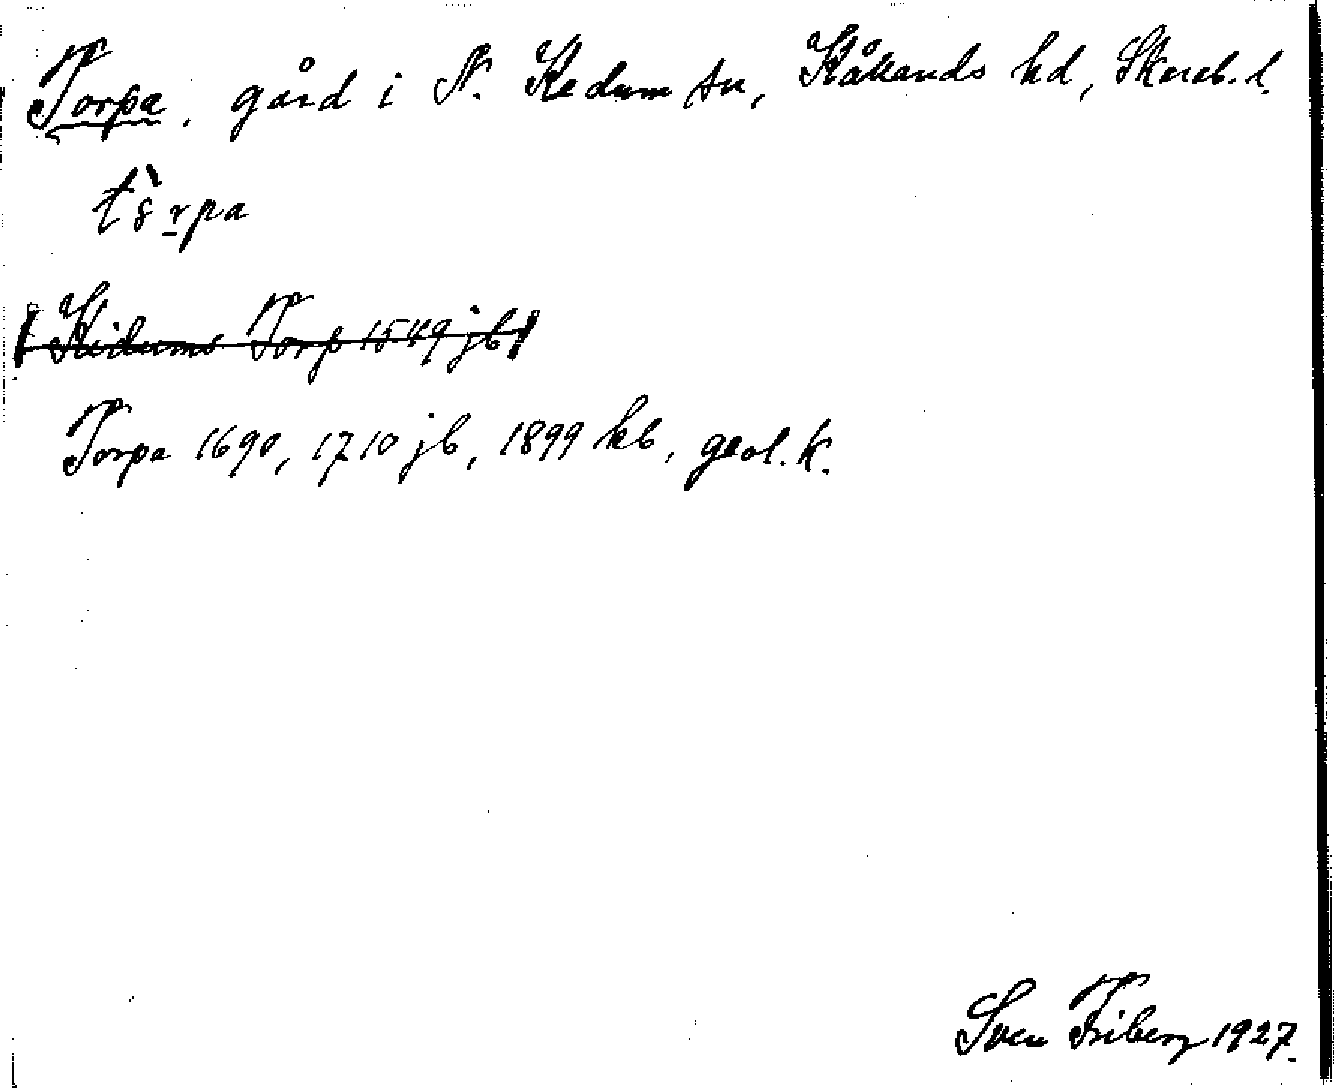 Torpa, gård i N. Kedum sn, Kållands hd, Skarab. l.
Kidums Torp 1549 jb
Torpa 1690, 1710 jb, 1899 kb, geol. k.
Sven Friberg 1927.